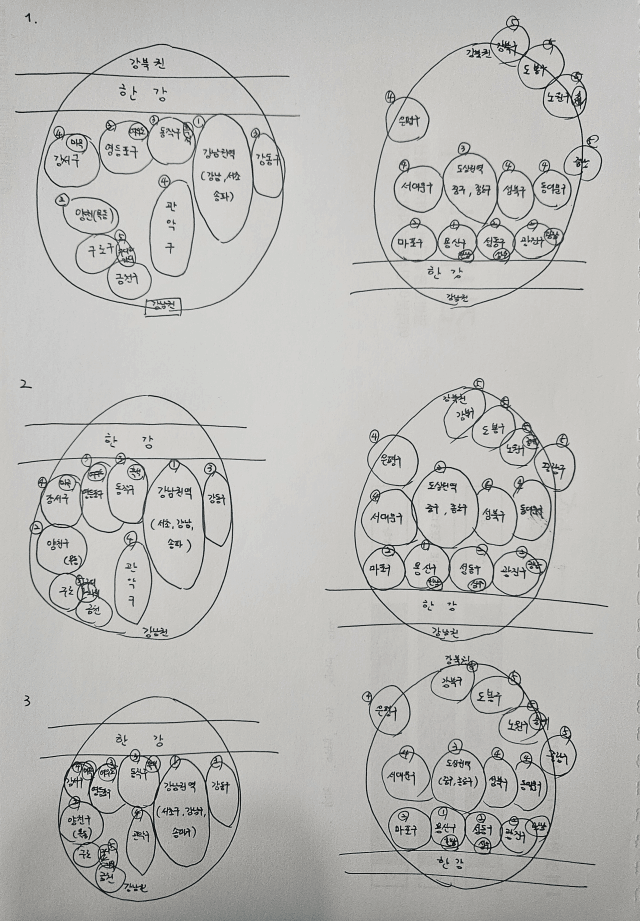 1.
강북권
한 강
④
마곡
강서구
②
여의도
영등포구
③
동작구
①
강남권역
(강남, 서초
송파)
③
강동구
②
양천(목동)
④
관
악
구
구로구
⑤
금천구
강남권
⑤
강북권
강북구
도봉구
노원구
④
은평구
④
서대문구
③
도심권역
중구, 종로구
④
성북구
④
동대문구
마포구
①
용산구
②
성동구
광진구
한 강
강남권
2
한 강
④
강서구
영등포구
동작구
①
강남권역
(서초, 강남,
송파)
③
강동구
②
양천구
(목동)
관
악
구
구로
금천
강남권
강북권
⑤
강북
도봉구
노원구
⑤
중랑구
④
은평구
④
서대문구
도심권역
중구, 종로구
성북구
동대문구
마포구
①
용산구
성동구
광진구
한 강
강남권
3
한 강
강서구
영등포구
동작구
강남권역
(서초구, 강남구,
송파구)
강동구
양천구
(목동)
관악구
구로
금천
강남권
강북권
강북구
도봉구
노원구
⑤
중랑구
은평구
서대문구
③
도심권역
(중구, 종로구)
④
성북구
④
동대문구
마포구
①
용산구
②
성동구
광진구
한 강